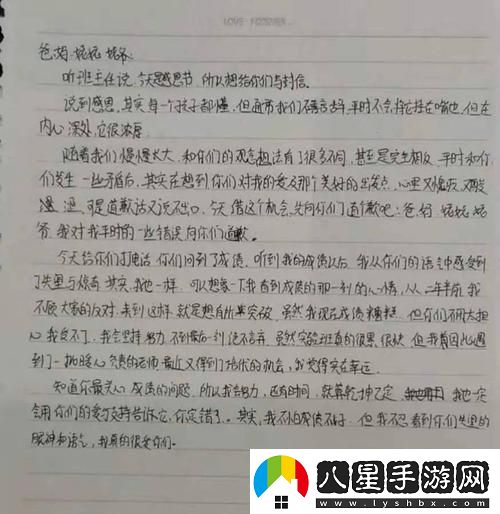 LOVE FOREVER
爸、妈、姥姥、姥爷:
听班主任说,今天是感恩节,所以想给你们写封信。
说到感恩,其实每一个孩子都懂,但通常我们不善言辞,平时不会将它挂在嘴边,但在
内心深处,它很浓厚。
随着我们慢慢长大,和你们的观念想法有了很多不同,甚至是完全相反,平时和你
们发生一些矛盾后,其实在想到你们对我的爱及那个美好的出发点,心里又愧疚
可是道歉话又说不出口,今天借这个机会,先向你们道个歉吧:爸、妈、姥姥、姥
爷,我对我平时的一些错误向你们道歉。
今天给你们打电话,你们问到了成绩,听到我的成绩以后,我从你们的语气中感受到
了失望与惊奇,其实,我也一样,可以想象一下我看到成绩的那一刻的心情,从二年前,我
不顾大家的反对,来到这样,就是想有所突破,虽然我现在成绩糟糕,但你们不用太担
心,我受不了,我会坚持努力,不到最后一刻绝不言弃,虽然实验班真的很累,很快,但我有因此遇
到了一批暖心负责的老师,最近又得到了培优的机会,我觉得实在幸运。
知道你最关心成绩的问题,所以我会努力,还有时间,就算乾坤已定,我也一定
会用你们的爱与支持告诉它,你定错了。其实,我不怕成绩不好,但我不忍看到你们失望的
眼神和语气,我真的很爱你们。
八星手游网
www.lyshbx.com